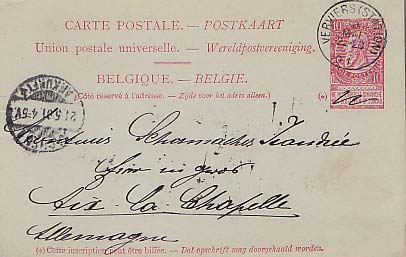 CARTE POSTALE. — POSTKAART
Union postale universelle. — Wereldpostvereeniging.
BELGIQUE. — BELGIE.
(Côté réservé à l'adresse. — Zijde voor het adres alleen.)
(*)
10 10
VERVIERS (STATION)
ANKUNFT
21.5.01.4-5V.
Louis Schumacher
en gros
Aix la Chapelle
Allemagne
(*) Cette inscription peut être biffée. — Dat opschrift mag doorgehaald worden.